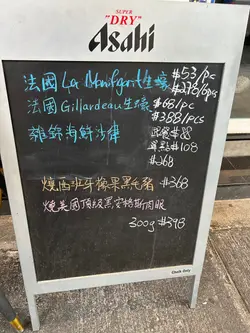 SUPER
"DRY"
Asahi
法國 La 生蠔 $53/pc
法國 Gillardeau 生蠔 $68/pc
$388/6pcs
雜錦海鮮沙律
$108
$268
燒西班牙蘋果黑毛豬 $368
燒美國頂級黑安格斯肉眼
300g $398
Chalk Only